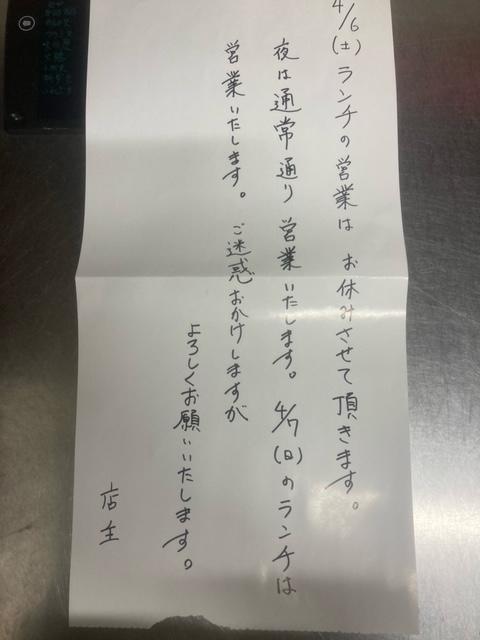 4/6(土)ランチの営業は お休みさせて頂きます。
夜は通常通り営業いたします。4/7(日)のランチは
営業いたします。ご迷惑おかけしますが
よろしくお願いいたします。
店主